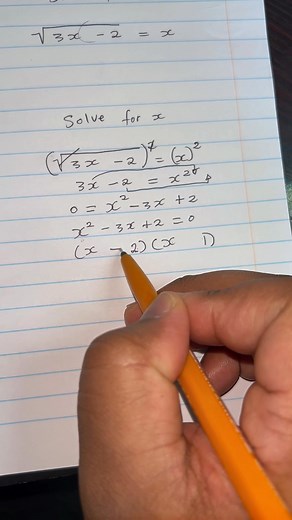 √3x - 2 = x
Solve for x
(√3x - 2)² = (x)²
3x - 2 = x²
0 = x² - 3x + 2
x² - 3x + 2 = 0
(x - 2)(x 1)